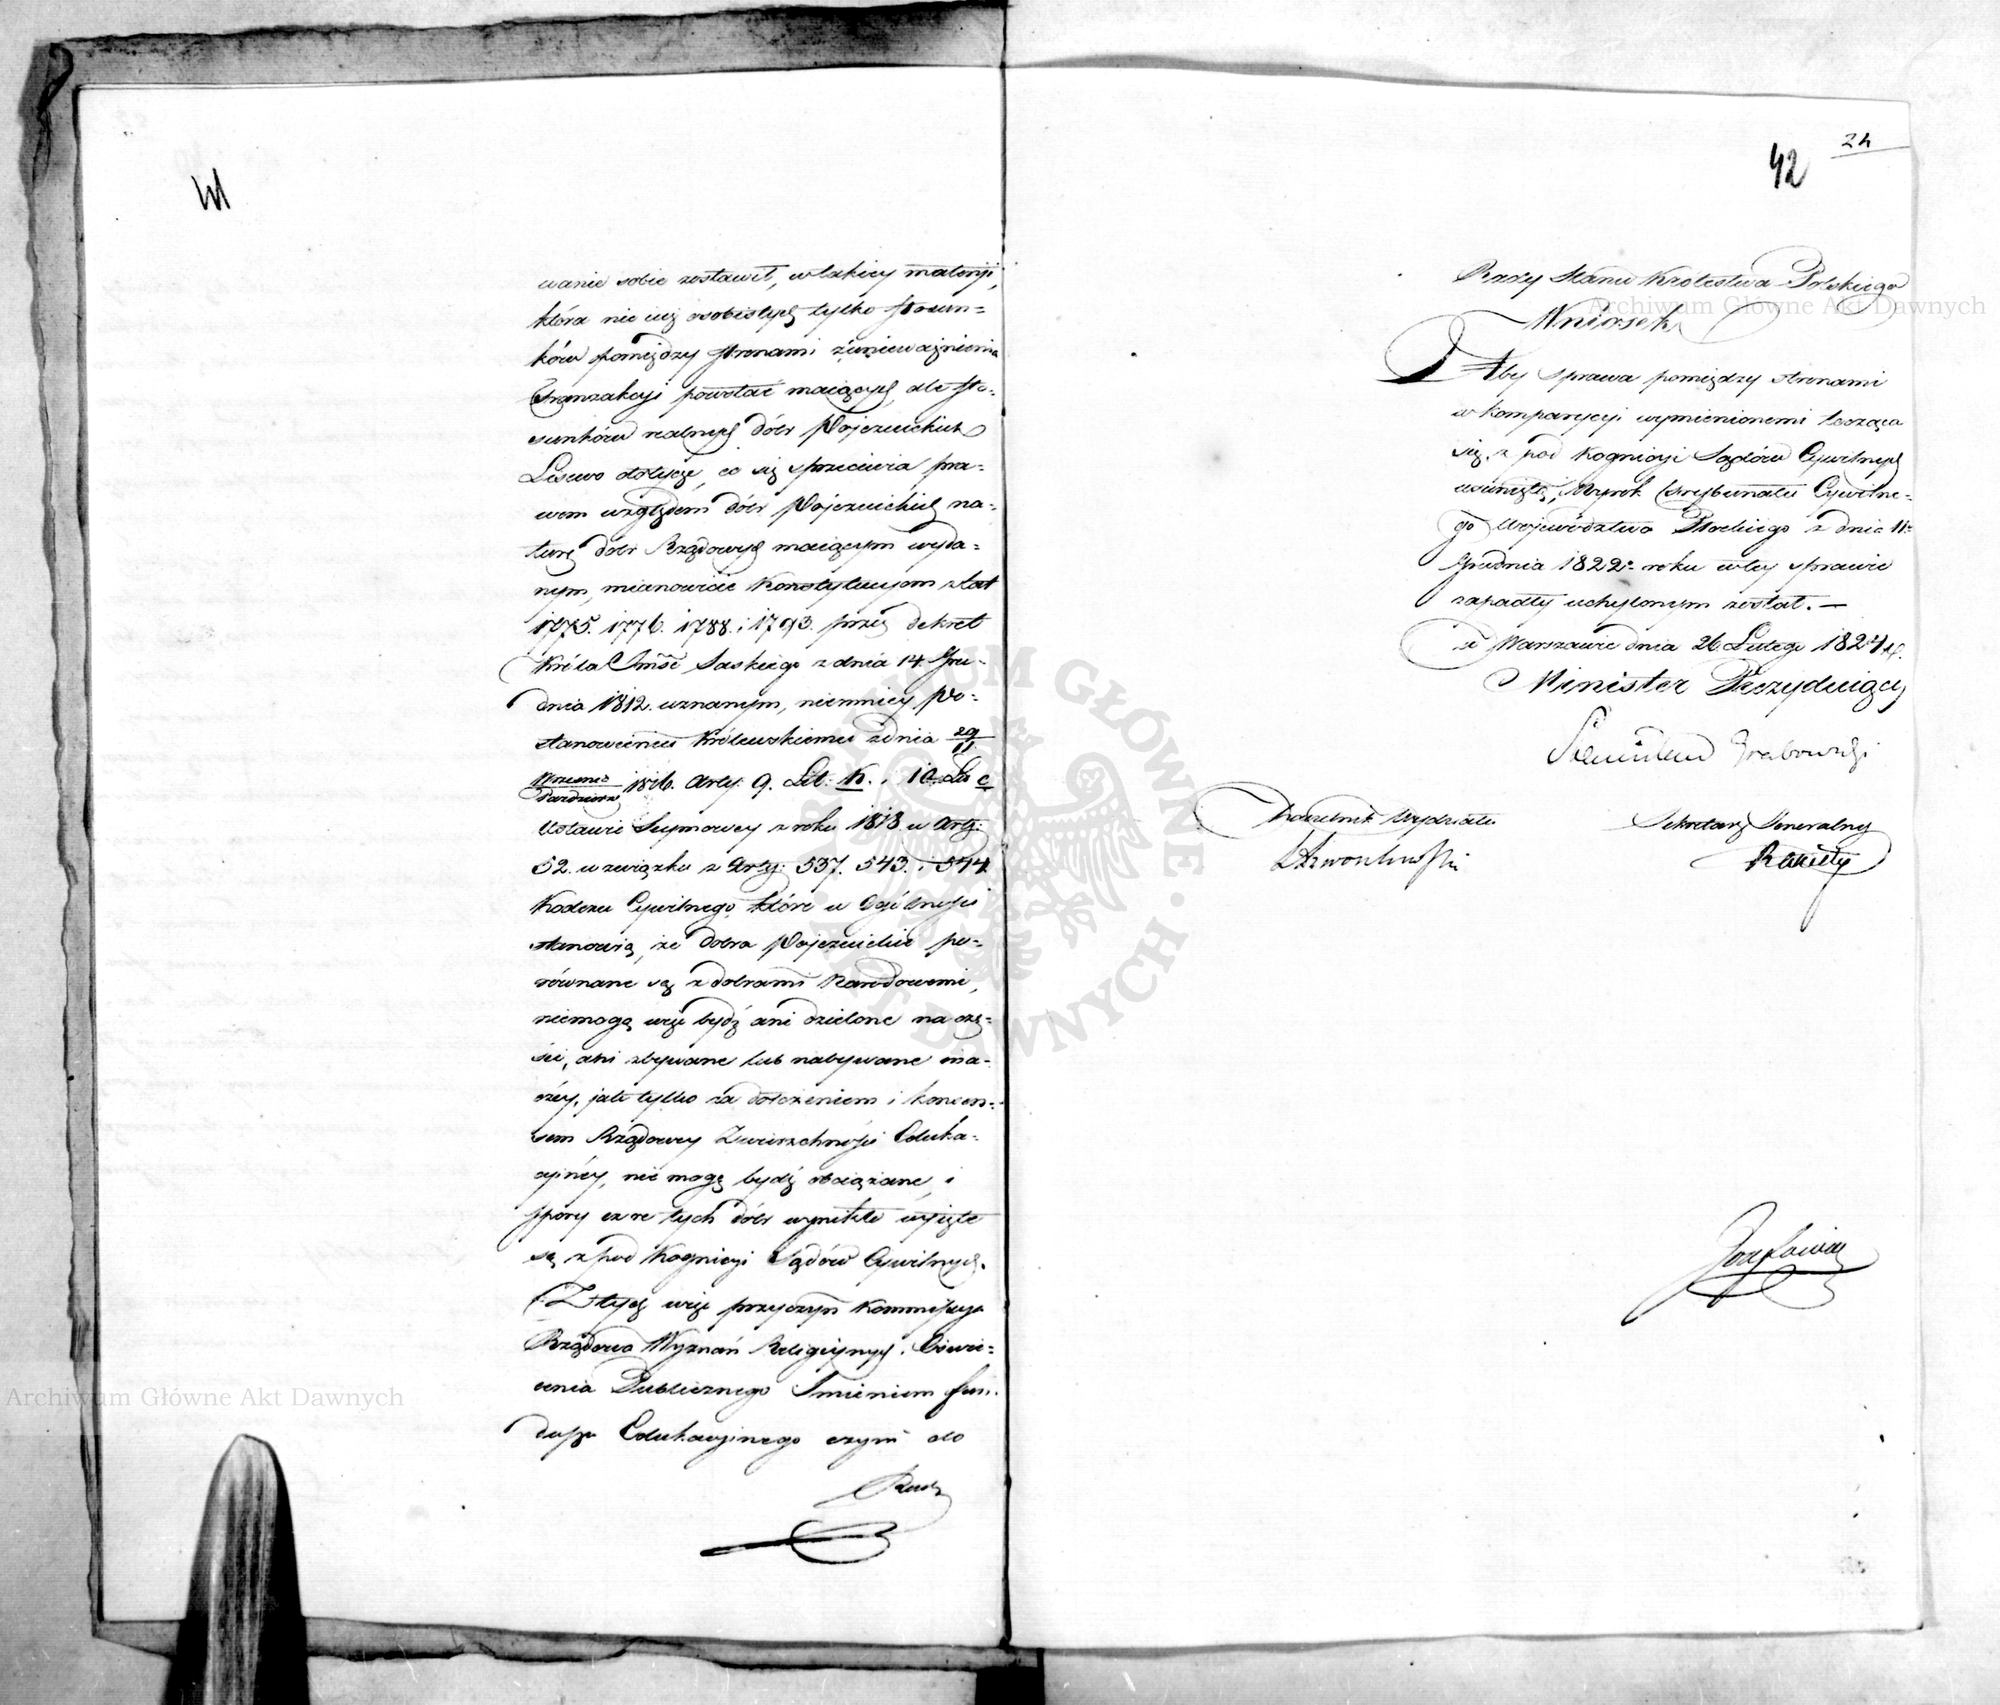 41
wanie sobie zostawił, w takiey materyi,
która nie iuż osobistych tylko stosun=
ków pomiędzy stronami z unieważnienia
Tranzakcyi powstać maiących, ale sto=
sunków realnych dóbr Pojezuickich
Lisewo dotyczy, co się sprzeciwia pra=
wom względem dóbr Pojezuickich na=
turę dóbr Rządowych maiącym wyda=
nym, mianowicie Konstytucyom z lat
1775. 1776. 1788. i 1793. przez dekret
Króla Jmści Saskiego z dnia 14. Gru=
dnia 1812. uznanym, niemniey Po=
stanowieniu Królewskiemu z dnia 29/11
Września/Października 1816. Arty: 9. Lit: K. i 10. Lit c
Ustawie Seymowey z roku 1818. w Arty:
52. w związku z Arty: 537. 543. i 544
Kodexu Cywilnego, które w Ogólności
stanowią, że dobra Pojezuickie po=
równane są z dobrami Narodowemi,
niemogą więc bydź ani dzielone na czę=
ści, ani zbywane lub nabywane ina=
czey, jak tylko za dołożeniem i konsen=
sem Rządowey Zwierzchności Eduka=
cyiney, nie mogą bydź obciążane, i
spory co re tych dóbr wynikłe wyięte
są z pod Kognicyi Sądów Cywilnych.
Z tych więc przyczyn Kommissya
Rządowa Wyznań Religiynych i Oświe=
cenia Publicznego Imieniem fun=
duszu Edukacyinego czyni do
Rady
42
24
Rady Stanu Królestwa Polskiego
Wniosek
Aby sprawa pomiędzy stronami
w komparycyi wymienionemi tocząca
się, z pod Kognicyi Sądów Cywilnych
usuniętą, Wyrok Trybunału Cywilne=
go Województwa Płockiego z dnia 11o
Grudnia 1822o roku w tey sprawie
zapadły uchylonym został. —
w Warszawie dnia 26 Lutego 1824 r.
Minister Prezyduiący
Stanisław Grabowski
Naczelnik Wydziału
Sekretarz Generalny
Archiwum Główne Akt Dawnych
Archiwum Główne Akt Dawnych
ARCHIWUM GŁÓWNE AKT DAWNYCH